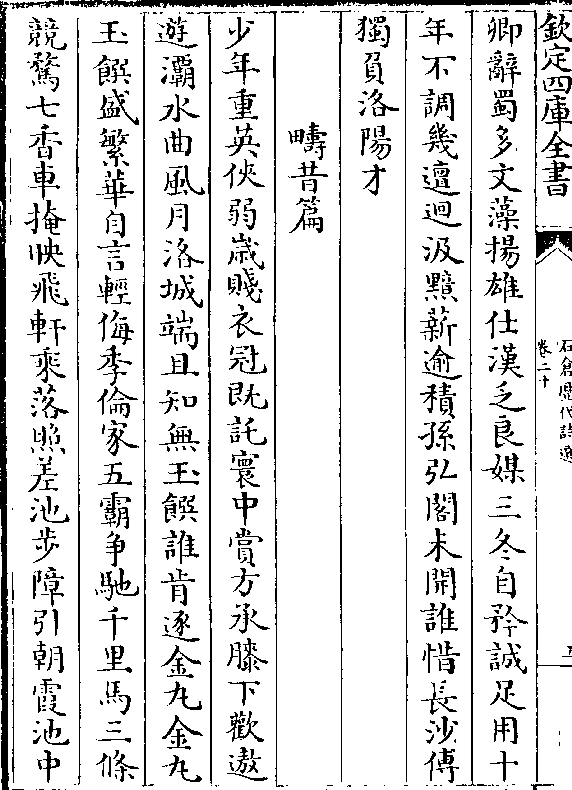 欽定四庫全書
石倉歷代詩選
卷二十
五
卿辭蜀多文藻揚雄仕漢乏良媒三冬自矜誠足用十
年不調幾邅迴汲黯薪逾積孫弘閣未開誰惜長沙傅
獨負洛陽才
疇昔篇
少年重英俠弱歲賤衣冠既託寰中賞方承膝下歡遨
遊灞水曲風月洛城端且知無玉饌誰肯逐金丸金丸
玉饌盛繁華自言輕侮季倫家五霸爭馳千里馬三條
競騖七香車掩映飛軒乘落照差池步障引朝霞池中